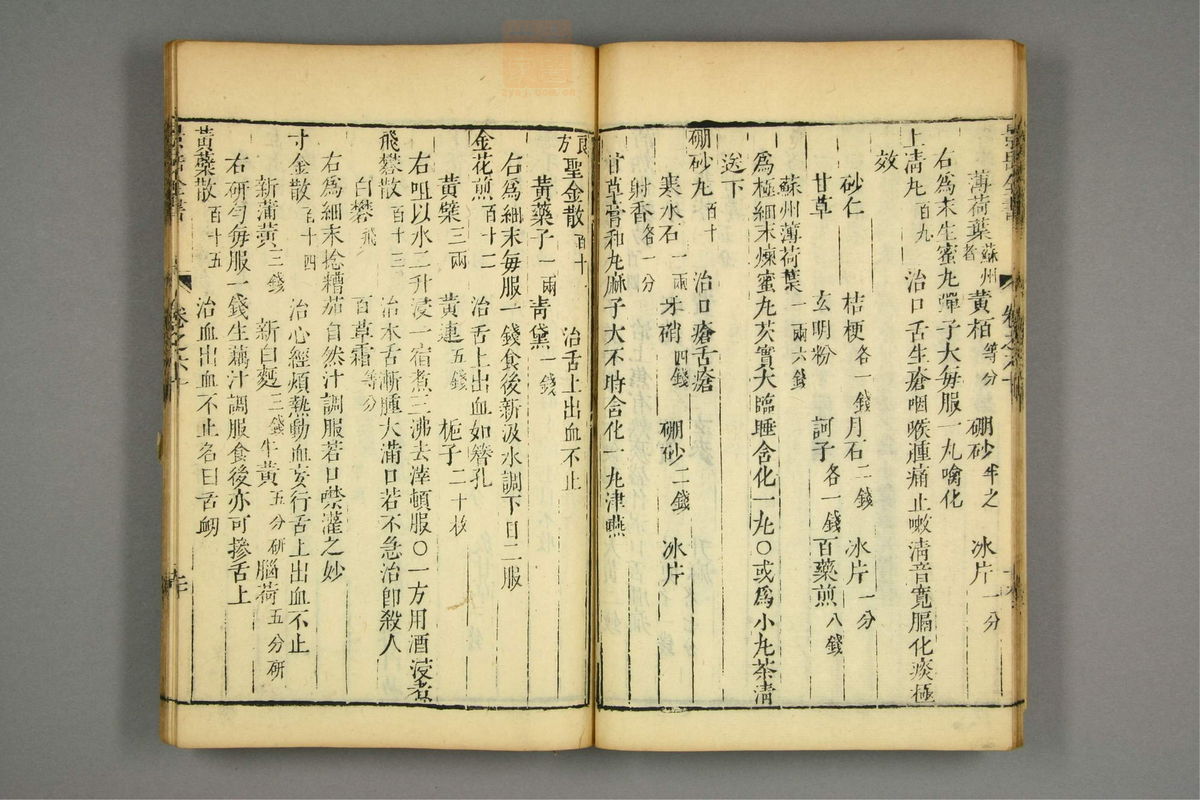 薄荷葉蘇州者 黃栢等分 硼砂半之 冰片一分
右爲末生蜜丸彈子大每服一丸噙化
上清丸百九 治口舌生瘡咽喉腫痛止嗽清音寬膈化痰極
效
砂仁 桔梗各一錢 月石二錢 冰片一分
甘草 玄明粉 訶子各一錢 百藥煎八錢
蘇州薄荷葉一兩六錢
爲極細末煉蜜丸芡實大臨睡含化一丸○或爲小丸茶清
送下
硼砂丸百十 治口瘡舌瘡
寒水石一兩 牙硝四錢 硼砂二錢 冰片
射香各一分
甘草膏和丸麻子大不時含化一丸津嚥
良方聖金散百十一 治舌上出血不止
黃藥子一兩 青黛一錢
右爲細末每服一錢食後新汲水調下日二服
金花煎百十二 治舌上出血如簪孔
黃蘗三兩 黃連五錢 梔子二十枚
右㕮以水二升浸一宿煮三沸去滓頓服○一方用酒浸煮
飛礬散百十三 治木舌漸腫大滿口若不急治卽殺人
白礬飛 百草霜等分
右爲細末捻糟茄自然汁調服若口噤灌之妙
寸金散百十四 治心經煩熱動血妄行舌上出血不止
新蒲黃三錢 新白麪三錢 牛黃五分研 腦荷五分研
右研勻每服一錢生藕汁調服食後亦可摻舌上
黃藥散百十五 治血出血不止名曰舌衂
卷之六十